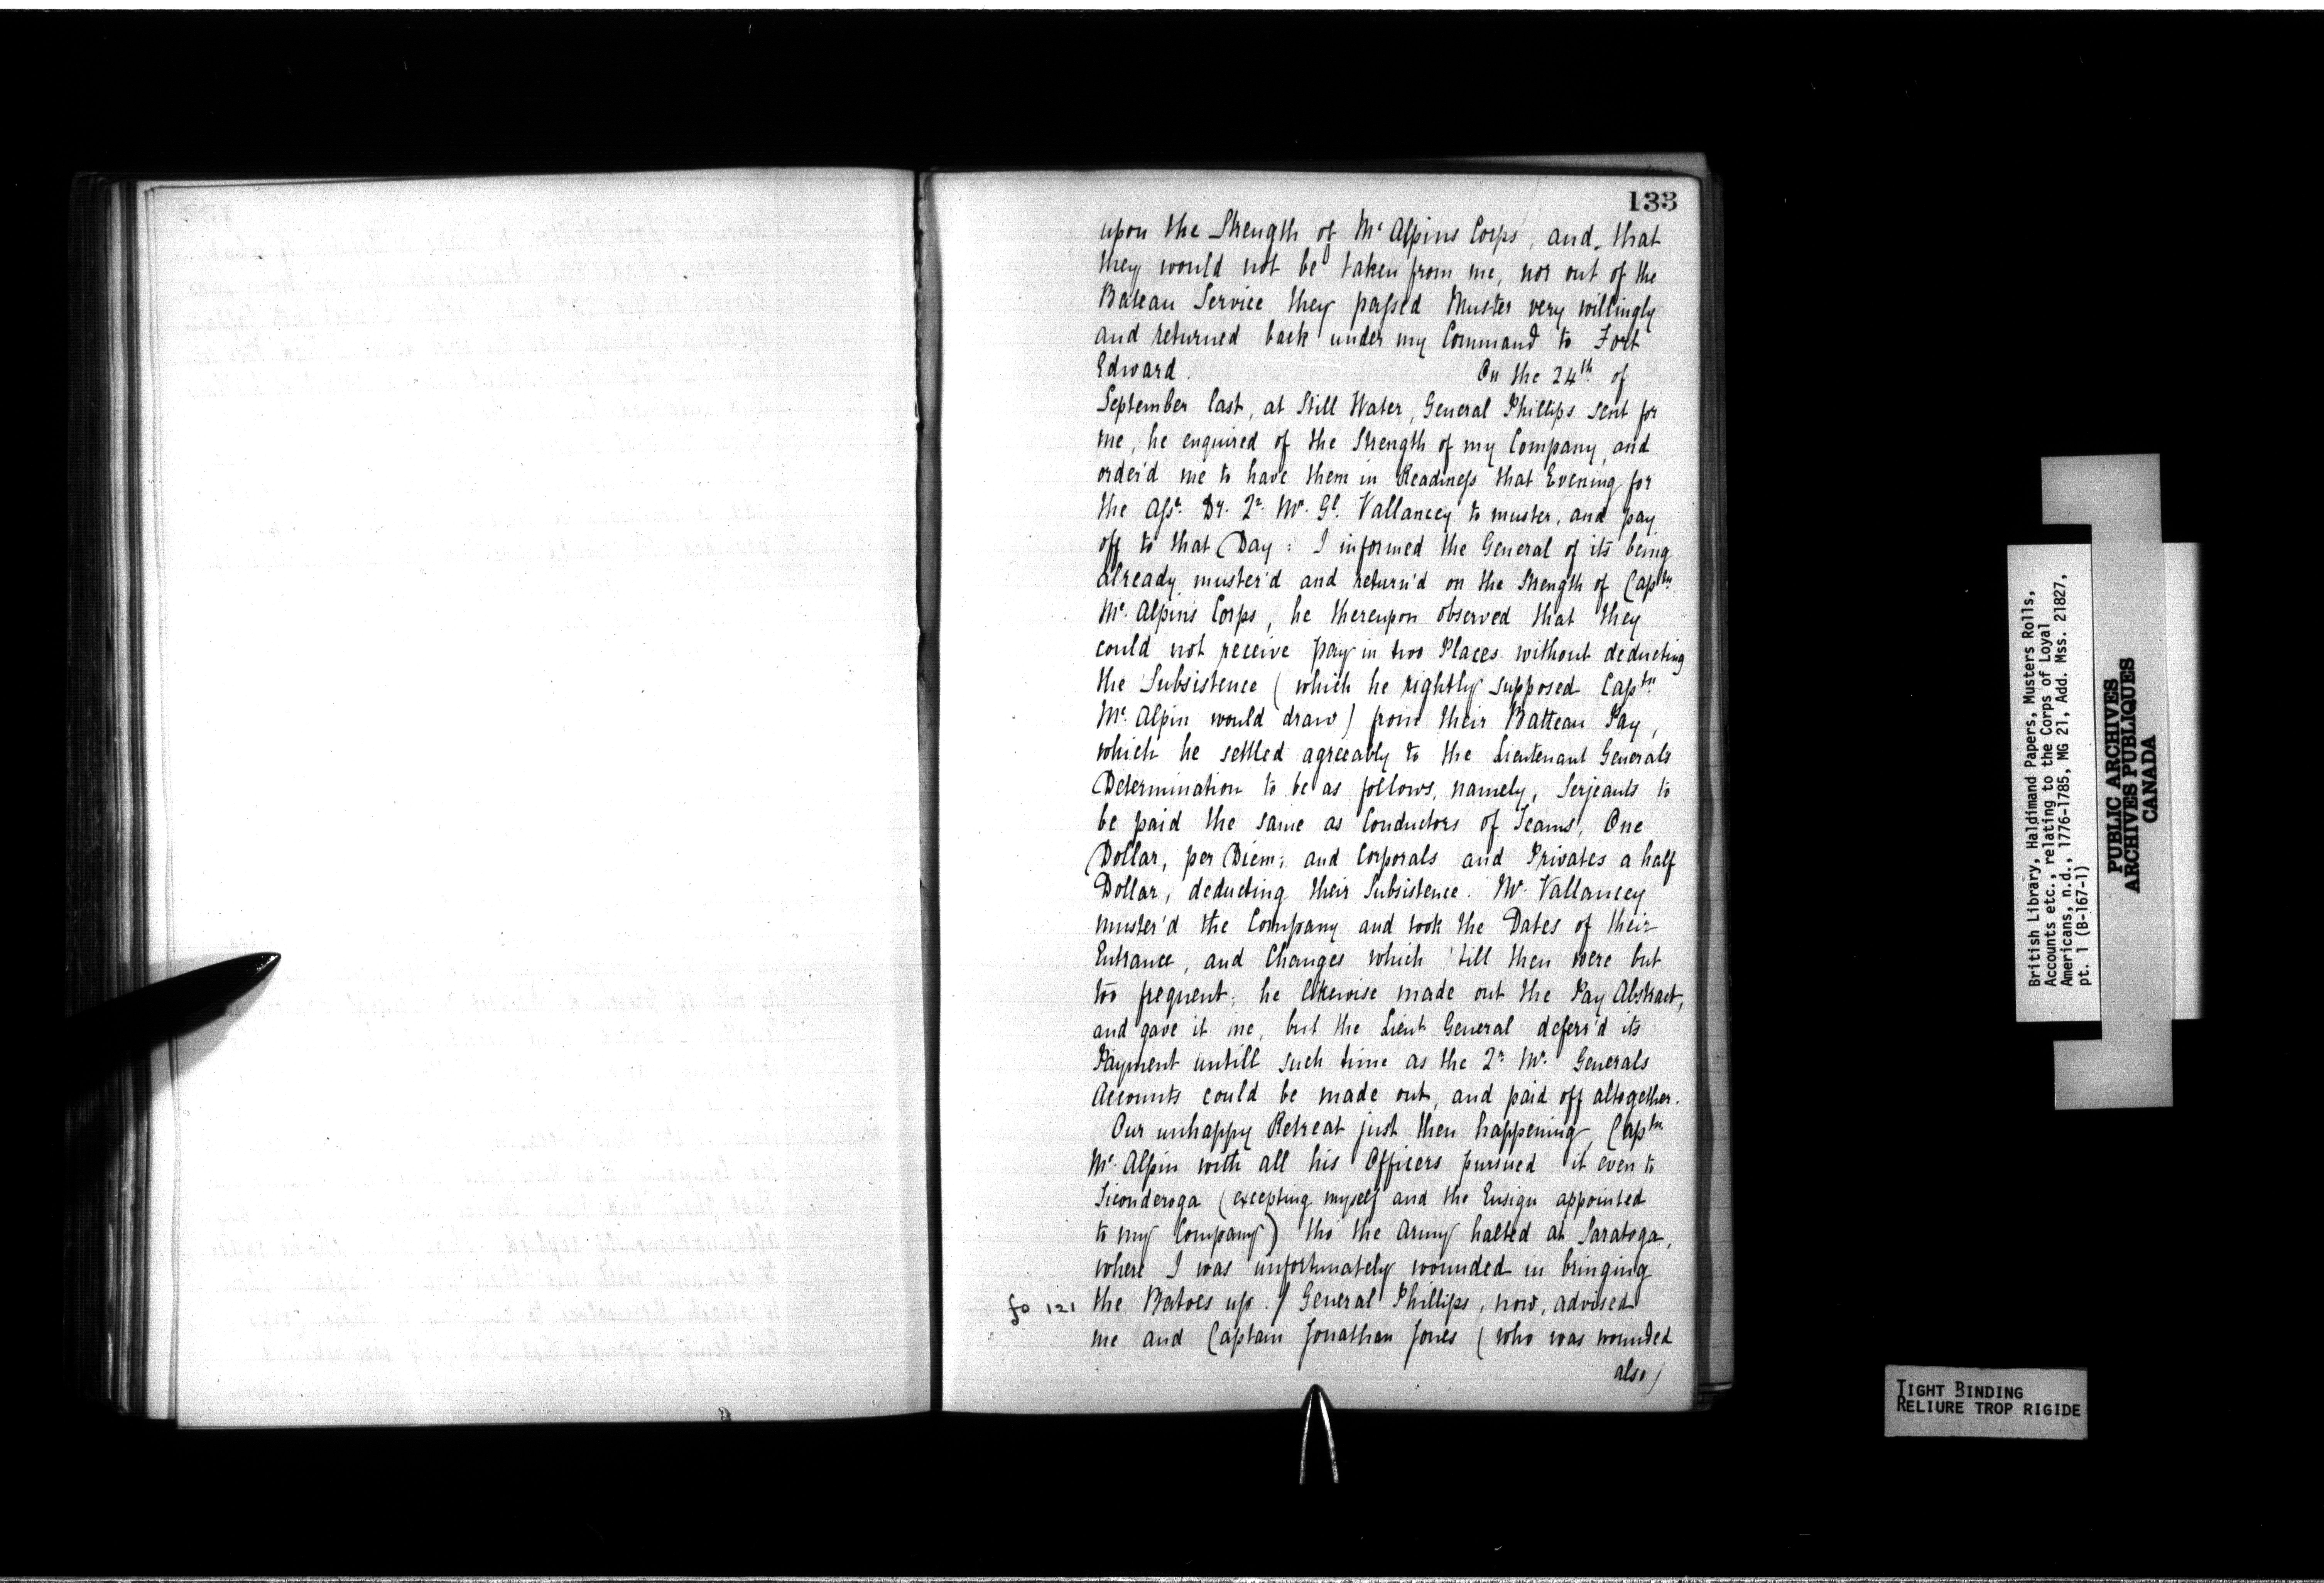 133
upon the Strength of Mc Alpins Corps, and that
they would not be taken from me, nor out of the
Bateau Service they passed Muster very willingly
and returned back under my Command to Fort
Edward. On the 24th. of
September last, at Still Water, General Phillips sent for
me, he enquired of the Strength of my Company, and
order'd me to have them in Readiness that Evening for
the Asst. Dy. Qr. Mr. Gl. Vallancey to muster, and pay
off to that Day: I informed the General of its being
already muster'd and return'd on the Strength of Captn.
Mc. Alpins Corps, he thereupon observed that they
could not receive pay in two Places without deducting
the Subsistence (which he rightly supposed Captn.
Mc. Alpin would draw) from their Batteau Pay,
which he settled agreeably to the Lieutenant Generals
Determination to be as follows, namely, Serjeants to
be paid the same as Conductors of Teams, One
Dollar, per Diem; and Corporals and Privates a half
Dollar, deducting their Subsistence. Mr. Vallancey
muster'd the Company and took the Dates of their
Entrance, and Changes which 'till then were but
too frequent; he likewise made out the Pay Abstract,
and gave it me, but the Lieut General deferr'd its
Payment untill such time as the Qr. Mr. Generals
Accounts could be made out, and paid off altogether.
Our unhappy Retreat just then happening, Captn
Mc. Alpin with all his Officers pursued it even to
Ticonderoga (excepting myself and the Ensign appointed
to my Company) tho' the Army halted at Saratoga,
where I was unfortunately wounded in bringing
fo 121 the Batoes up. / General Phillips, now, advised
me and Captain Jonathan Jones (who was wounded
also)
British Library, Haldimand Papers, Musters Rolls,
Accounts etc., relating to the Corps of Loyal
Americans, n.d., 1776-1785, MG 21, Add. Mss. 21827,
pt. 1 (B-167-1)
PUBLIC ARCHIVES
ARCHIVES PUBLIQUES
CANADA
TIGHT BINDING
RELIURE TROP RIGIDE